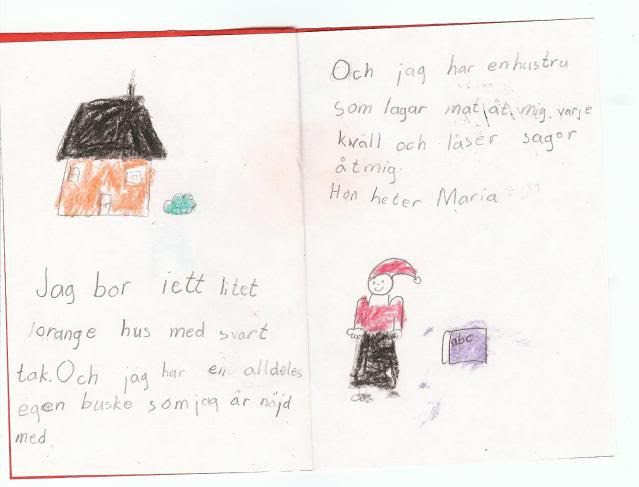 Jag bor iett litet
orange hus med svart
tak. Och jag har en alldeles
egen buske som jag är nöjd
med.
Och jag har en hustru
som lagar mat åt mig varje
kväll och läser sagor
åt mig.
Hon heter Maria
abc